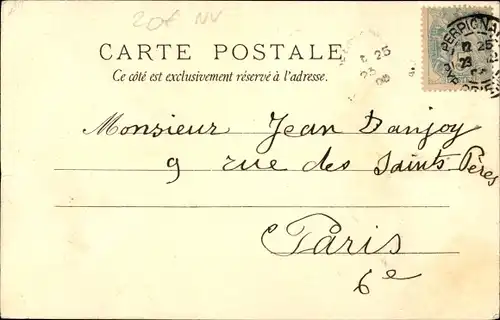 20€ NV
CARTE POSTALE
Ce côté est exclusivement réservé à l'adresse.
25
23
PERPIGNAN
12 25
23
Monsieur Jean Danjoy
9 rue des Saints Pères
Paris
6e